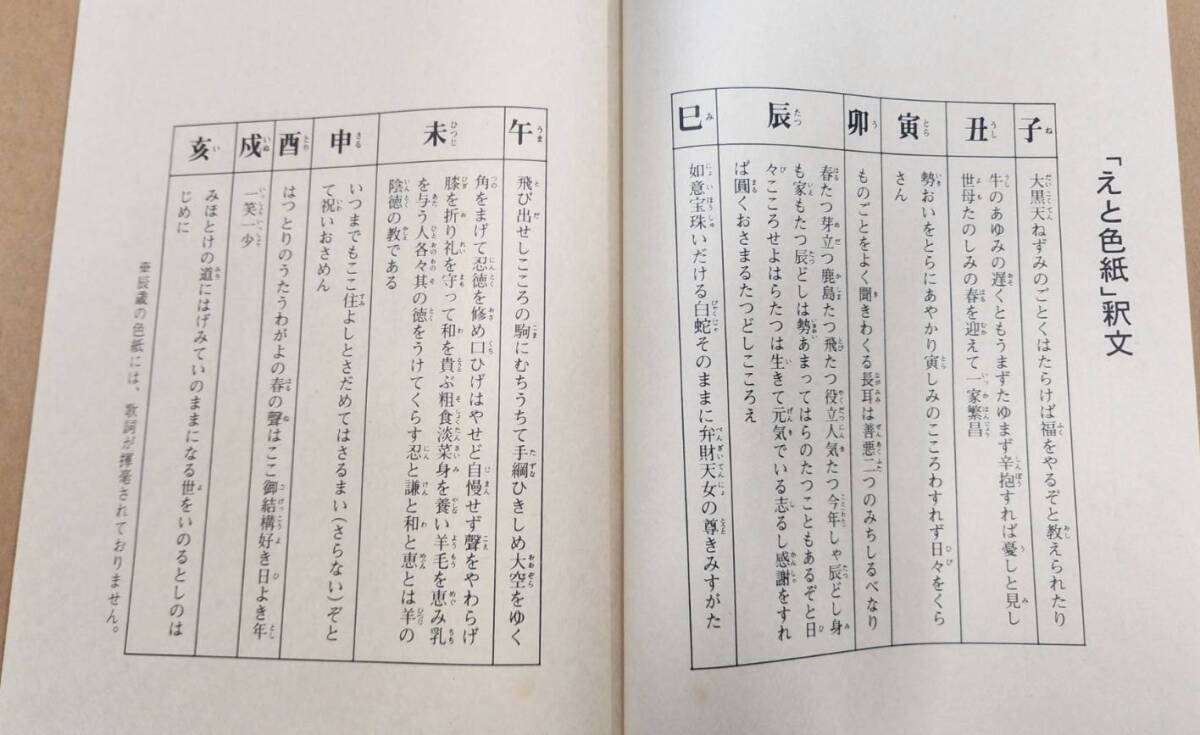 「えと色紙」釈文
子
大黒天ねずみのごとくはたらけば福をやるぞと教えられたり
丑
牛のあゆみの遅くともうまずたゆまず辛抱すれば憂しと見し
世母たのしみの春を迎えて一家繁昌
寅
勢おいをとらにあやかり寅しみのこころわすれず日々をくら
さん
卯
ものごとをよく聞きわくる長耳は善悪二つのみちしるべなり
辰
春たつ芽立つ鹿島たつ飛たつ役立人気たつ今年しゃ辰どし身
も家もたつ辰どしは勢あまってはらのたつこともあるぞと日
々こころせよはらたつは生きて元気でいる志るし感謝をすれ
ば圓くおさまるたつどしこころえ
巳
如意宝珠いだける白蛇そのままに弁財天女の尊きみすがた
午
飛び出せしこころの駒にむちうちて手綱ひきしめ大空をゆく
未
角をまげて忍徳を修め口ひげはやせど自慢せず聲をやわらげ
膝を折り礼を守って和を貴ぶ粗食淡菜身を養い羊毛を恵み乳
を与う人各々其の徳をうけてくらす忍と謙と和と恵とは羊の
陰徳の教である
申
いつまでもここ住よしとさだめてはさるまい(さらない)ぞと
て祝いおさめん
酉
はつとりのうたうわがよの春の聲はここ御結構好き日よき年
戌
一笑一少
亥
みほとけの道にはげみていのままになる世をいのるとしのは
じめに
※辰歳の色紙には、歌詞が揮毫されておりません。